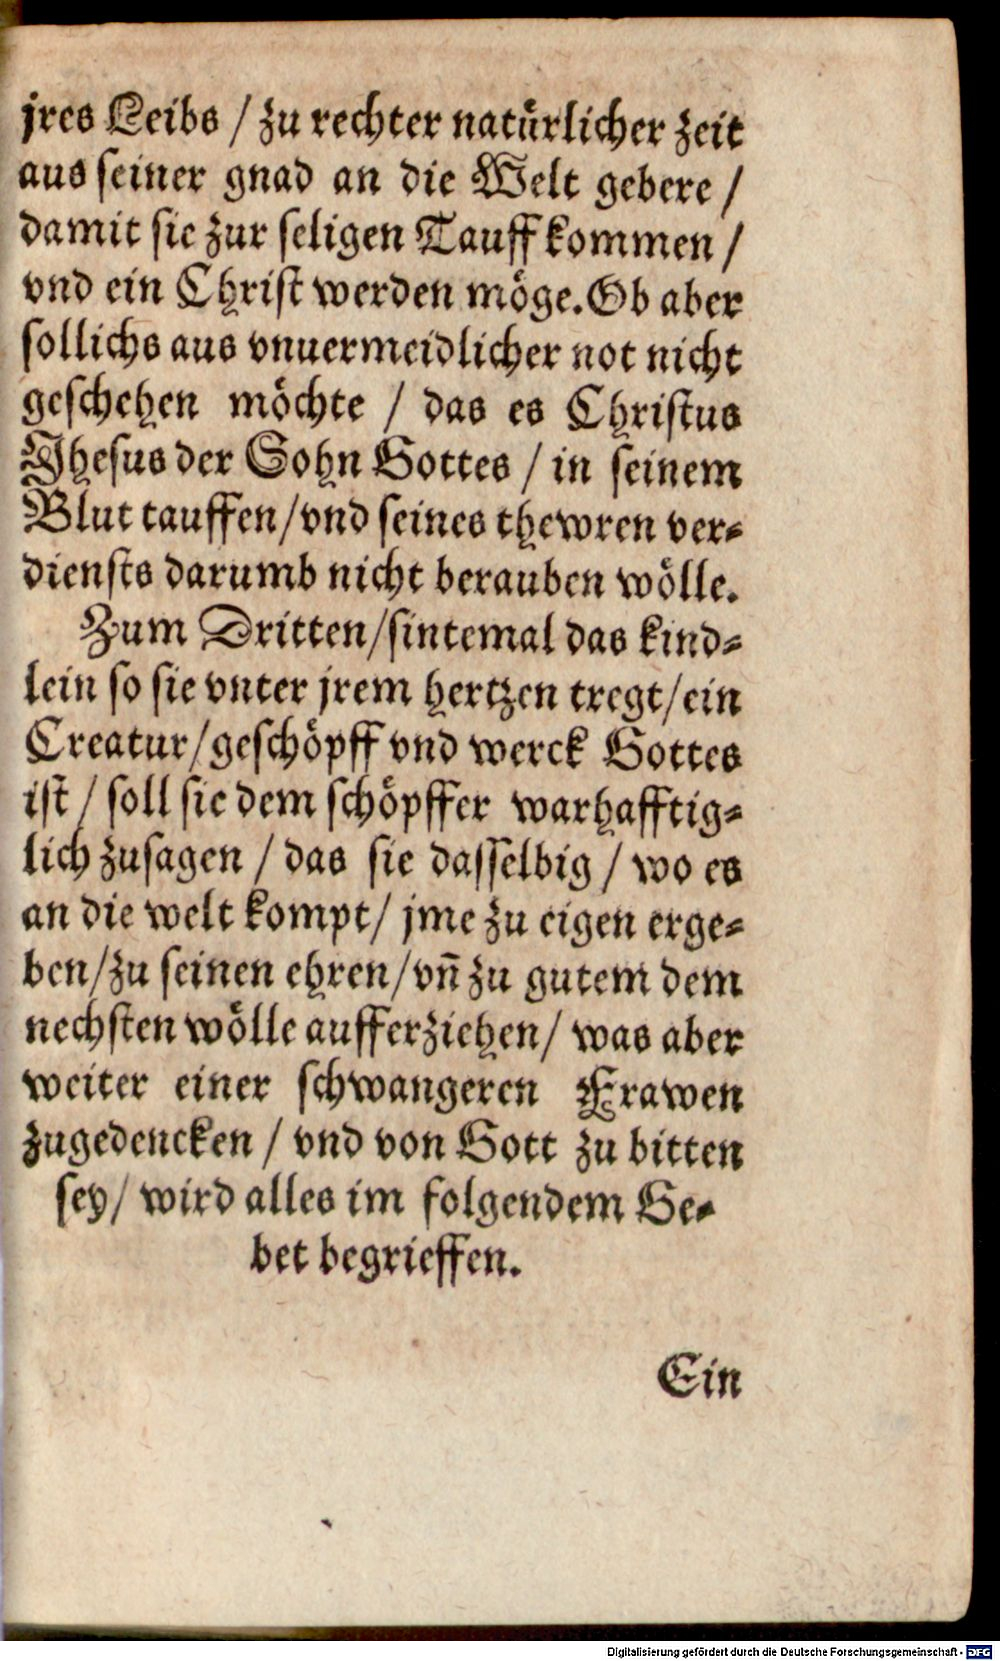 jres Leibs / zu rechter natůrlicher zeit
aus seiner gnad an die Welt gebere /
damit sie zur seligen Tauff kommen /
vnd ein Christ werden möge. Ob aber
sollichs aus vnuermeidlicher not nicht
geschehen möchte / das es Christus
Jhesus der Sohn Gottes / in seinem
Blut tauffen / vnd seines thewren ver-
diensts darumb nicht berauben wölle.
Zum Dritten / sintemal das kind-
lein so sie vnter jrem hertzen tregt / ein
Creatur / geschöpff vnd werck Gottes
ist / soll sie dem schöpffer warhafftig-
lich zusagen / das sie dasselbig / wo es
an die welt kompt / jme zu eigen erge-
ben / zu seinen ehren / vn̄ zu gutem dem
nechsten wölle aufferziehen / was aber
weiter einer schwangeren Frawen
zugedencken / vnd von Gott zu bitten
sey / wird alles im folgendem Ge-
bet begrieffen.
Ein
Digitalisierung gefördert durch die Deutsche Forschungsgemeinschaft - DFG